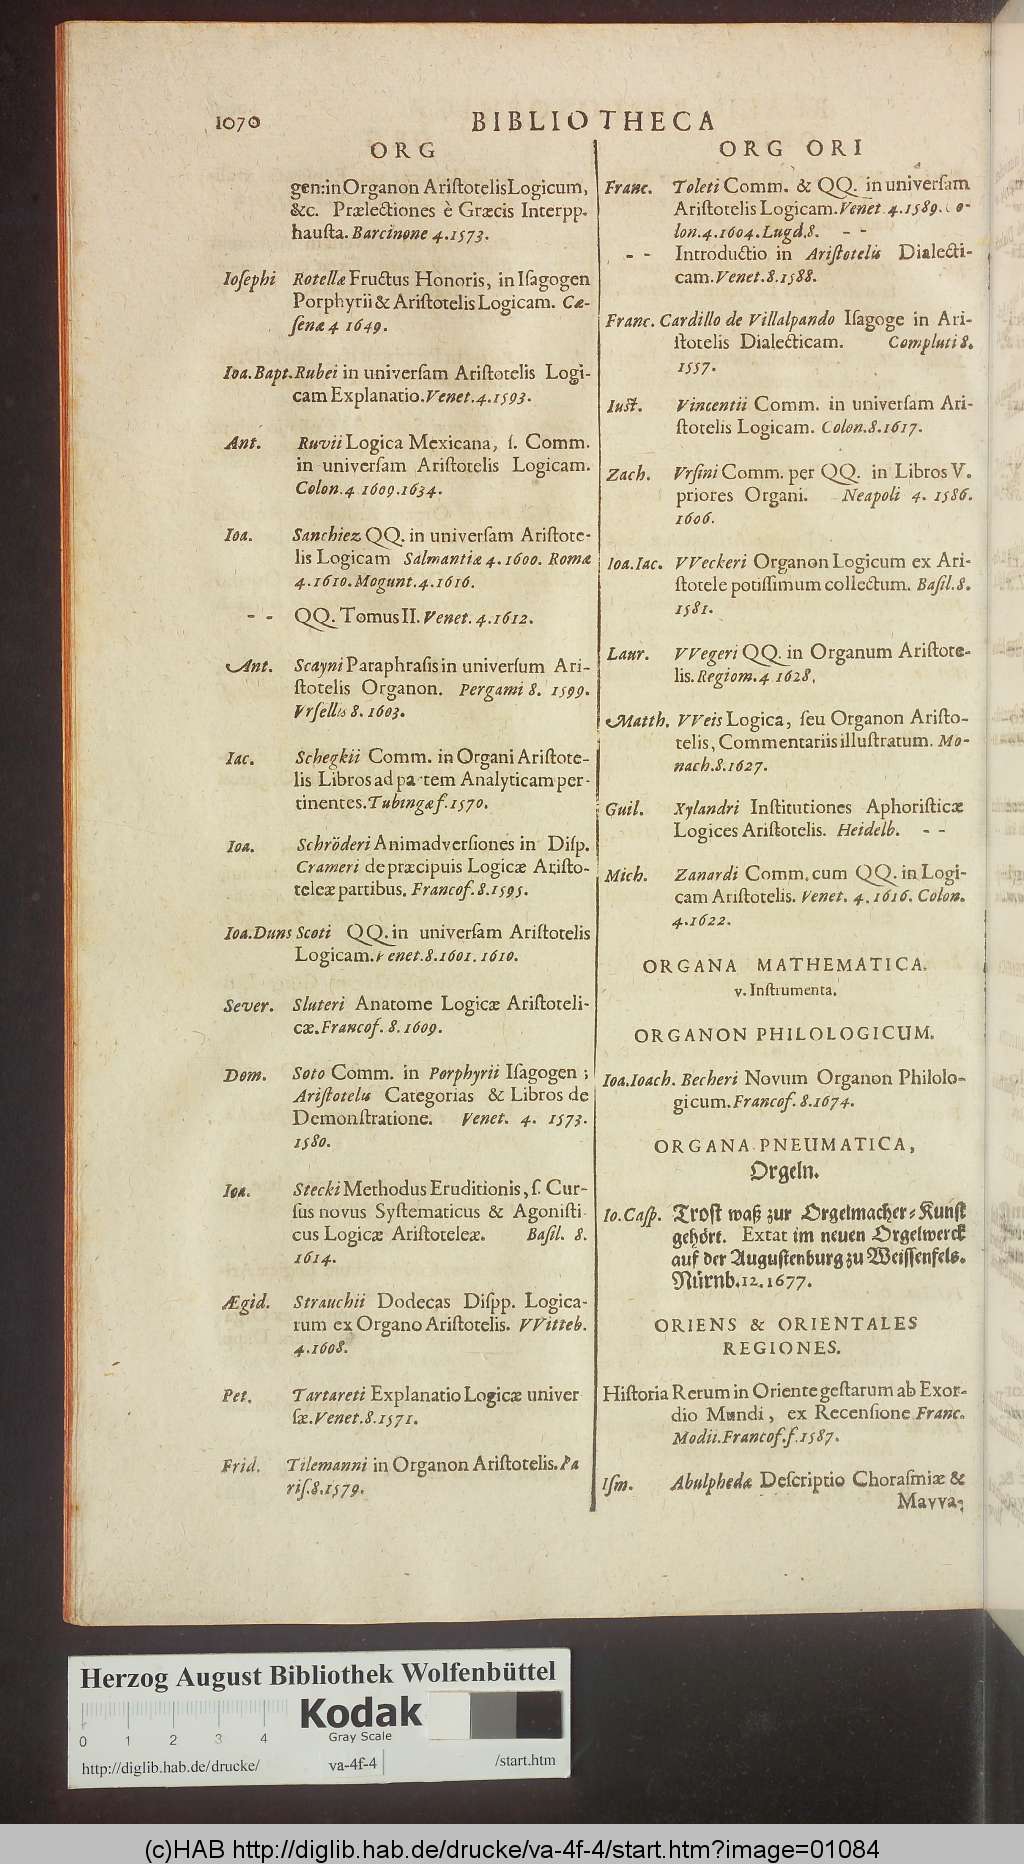 1070
BIBLIOTHECA
ORG
gen: in Organon Aristotelis Logicum,
&c. Prælectiones è Græcis Interpp.
hausta. Barcinone 4. 1573.
Iosephi Rotellæ Fructus Honoris, in Isagogen
Porphyrii & Aristotelis Logicam. Cæ-
senæ 4 1649.
Ioa. Bapt. Rubei in universam Aristotelis Logi-
cam Explanatio. Venet. 4. 1593.
Ant. Ruvii Logica Mexicana, s. Comm.
in universam Aristotelis Logicam.
Colon. 4 1609. 1634.
Ioa. Sanchiez QQ. in universam Aristote-
lis Logicam Salmantiæ 4. 1600. Romæ
4. 1610. Mogunt. 4. 1616.
- - QQ. Tomus II. Venet. 4. 1612.
Ant. Scayni Paraphrasis in universum Ari-
stotelis Organon. Pergami 8. 1599.
Vrsellis 8. 1603.
Iac. Schegkii Comm. in Organi Aristote-
lis Libros ad partem Analyticam per-
tinentes. Tubingæ f. 1570.
Ioa. Schröderi Animadversiones in Disp.
Crameri de præcipuis Logicæ Aristo-
teleæ partibus. Francof. 8. 1595.
Ioa. Duns Scoti QQ. in universam Aristotelis
Logicam. Venet. 8. 1601. 1610.
Sever. Sluteri Anatome Logicæ Aristoteli-
cæ. Francof. 8. 1609.
Dom. Soto Comm. in Porphyrii Isagogen;
Aristotelis Categorias & Libros de
Demonstratione. Venet. 4. 1573.
1580.
Ioa. Stecki Methodus Eruditionis, s. Cur-
sus novus Systematicus & Agonisti
cus Logicæ Aristoteleæ. Basil. 8.
1614.
Ægid. Strauchii Dodecas Dispp. Logica-
rum ex Organo Aristotelis. VVitteb.
4. 1608.
Pet. Tartareti Explanatio Logicæ univer
sæ. Venet. 8. 1571.
Frid. Tilemanni in Organon Aristotelis. Pa
ris. 8. 1579.
ORG ORI
Franc. Toleti Comm. & QQ. in universam
Aristotelis Logicam. Venet 4. 1589. Co-
lon. 4. 1604. Lugd. 8. - -
- - Introductio in Aristotelis Dialecti-
cam. Venet. 8. 1588.
Franc. Cardillo de Villalpando Isagoge in Ari-
stotelis Dialecticam. Compluti 8.
1557.
Iust. Vincentii Comm. in universam Ari-
stotelis Logicam. Colon. 8. 1617.
Zach. Vrsini Comm. per QQ. in Libros V.
priores Organi. Neapoli 4. 1586.
1606.
Ioa. Iac. VVeckeri Organon Logicum ex Ari-
stotele potissimum collectum. Basil. 8.
1581.
Laur. VVegeri QQ. in Organum Aristote-
lis. Regiom. 4 1628.
Matth. VVeis Logica, seu Organon Aristo-
telis, Commentariis illustratum. Mo-
nach. 8. 1627.
Guil. Xylandri Institutiones Aphoristicæ
Logices Aristotelis. Heidelb. - -
Mich. Zanardi Comm. cum QQ. in Logi-
cam Aristotelis. Venet. 4. 1616. Colon.
4. 1622.
ORGANA MATHEMATICA.
v. Instrumenta.
ORGANON PHILOLOGICUM.
Ioa. Ioach. Becheri Novum Organon Philolo-
gicum. Francof. 8. 1674.
ORGANA PNEUMATICA,
Orgeln.
Io. Casp. Trost waß zur Orgelmacher-Kunst
gehört. Extat im neuen Orgelwerck
auf der Augustenburg zu Weissenfels.
Nürnb. 12. 1677.
ORIENS & ORIENTALES
REGIONES.
Historia Rerum in Oriente gestarum ab Exor-
dio Mundi, ex Recensione Franc.
Modii. Francof. f. 1587.
Ism. Abulphedæ Descriptio Chorasmiæ &
Mavva-
Herzog August Bibliothek Wolfenbüttel
Kodak
Gray Scale
0 1 2 3 4
http://diglib.hab.de/drucke/ va-4f-4 /start.htm
(c)HAB http://diglib.hab.de/drucke/va-4f-4/start.htm?image=01084